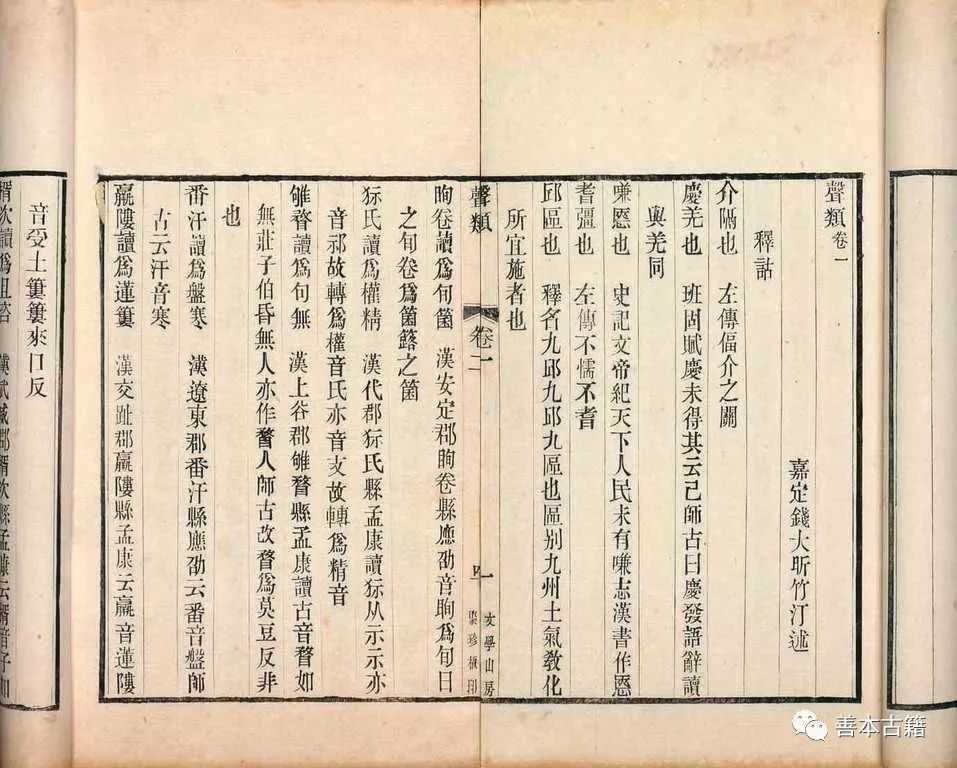 聲類卷一
嘉定錢大昕竹汀述
釋詁
介隔也　左傳偪介之關
慶羌也　班固賦慶未得其云己師古曰慶發語辭讀
與羌同
嗛慝也　史記文帝紀天下人民未有嗛志漢書作慝
耆彊也　左傳不懦不耆
邱區也　釋名九邱九邱九區也區别九州土氣教化
所宜施者也
聲類
卷一
一
文學山房
聚珍板印
眗卷讀爲旬箇　漢安定郡眗卷縣應劭音眗爲旬日
之旬卷爲箇簬之箇
狋氏讀爲權精　漢代郡狋氏縣孟康讀狋从示示亦
音祁故轉爲權音氏亦音支故轉爲精音
雊瞀讀爲句無　漢上谷郡雊瞀縣孟康讀古音瞀如
無莊子伯昏無人亦作瞀人師古改瞀爲莫豆反非
也
番汗讀爲盤寒　漢遼東郡番汗縣應劭云番音盤師
古云汗音寒
羸𨻻讀爲蓮簍　漢交趾郡羸𨻻縣孟康云羸音蓮𨻻
音受土簍簍來口反
善本古籍